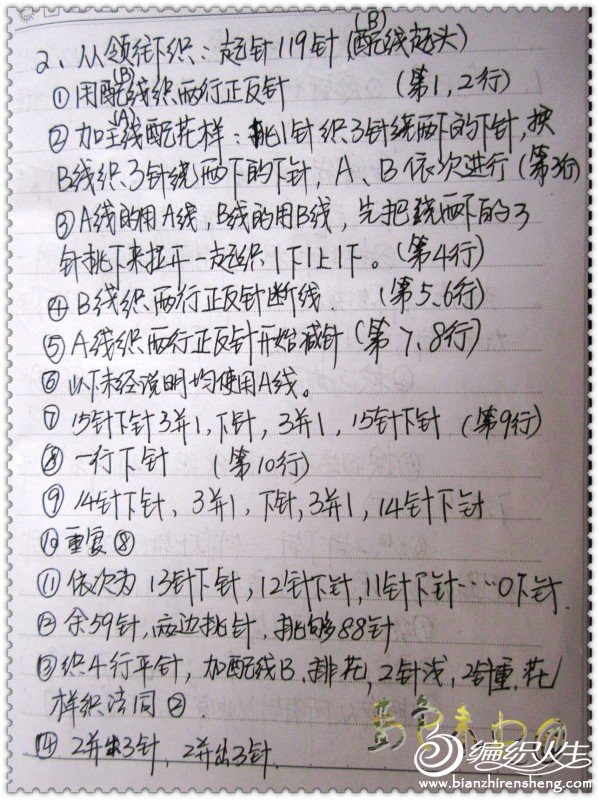 2、从领往下织:起针119针(配线起头)
(B)
①用配线织两行正反针 (第1,2行)
(B)
②加主线配花样:挑1针织3针绕两下的下针,换
(A)
B线织3针绕两下的下针,A、B依次进行(第3行)
③A线的用A线,B线的用B线,先把绕两下的3
针挑下来拉开一起织1下1上1下。(第4行)
④B线织两行正反针断线 (第5.6行)
⑤A线织两行正反针开始减针(第7、8行)
⑥以下未经说明均使用A线。
⑦15针下针3并1,下针,3并1,15针下针 (第9行)
⑧一行下针 (第10行)
⑨14针下针、3并1,下针,3并1,14针下针
⑩重复⑧
⑪依次为13针下针,12针下针,11针下针……0下针.
⑫余59针,两边挑针,挑够88针
⑬织4行平针,加配线B、排花,2针浅,2针重,花
样织法同②.
⑭2并出3针,2并出3针.
编织人生
www.bianzhirensheng.com